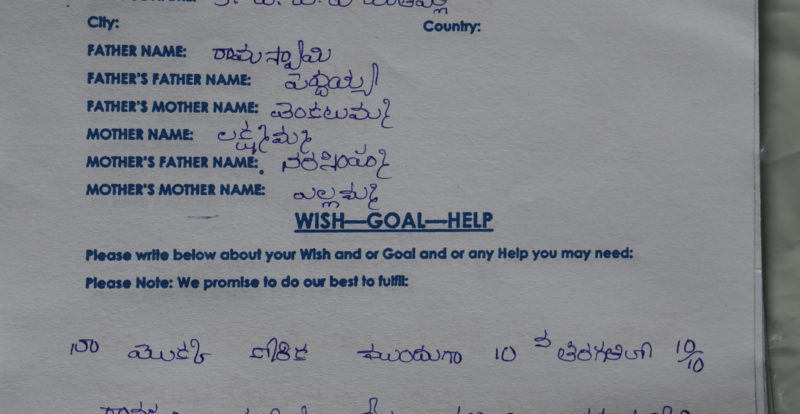 City: Country:
FATHER NAME: రామస్వామి
FATHER'S FATHER NAME: పెద్దయ్య
FATHER'S MOTHER NAME: వెంకటమ్మ
MOTHER NAME: లక్ష్మమ్మ
MOTHER'S FATHER NAME: నరసింహ
MOTHER'S MOTHER NAME: ఎల్లమ్మ
WISH—GOAL—HELP
Please write below about your Wish and or Goal and or any Help you may need:
Please Note: We promise to do our best to fulfil:
నా మొదటి కోరిక ముందుగా 10 వ తరగతిలో 10/10